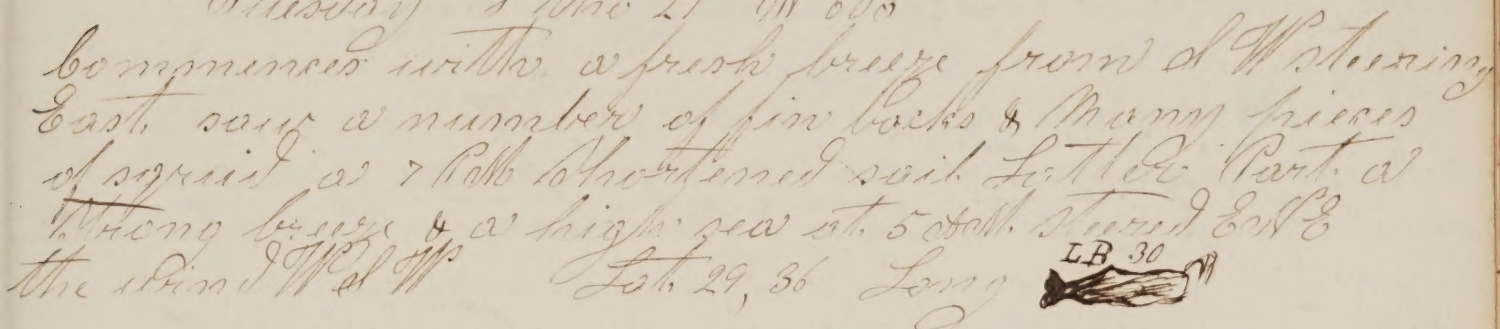 Tuesday
Commences with a fresh breeze from S W steering
East. saw a number of fin backs & Many pieces
of sqruid a 7 PM Shortened sail Latter Part a
Strong breeze & a high sea at 5 AM. steered E N E
the wind W S W Lat. 29, 36 Long
L B 30